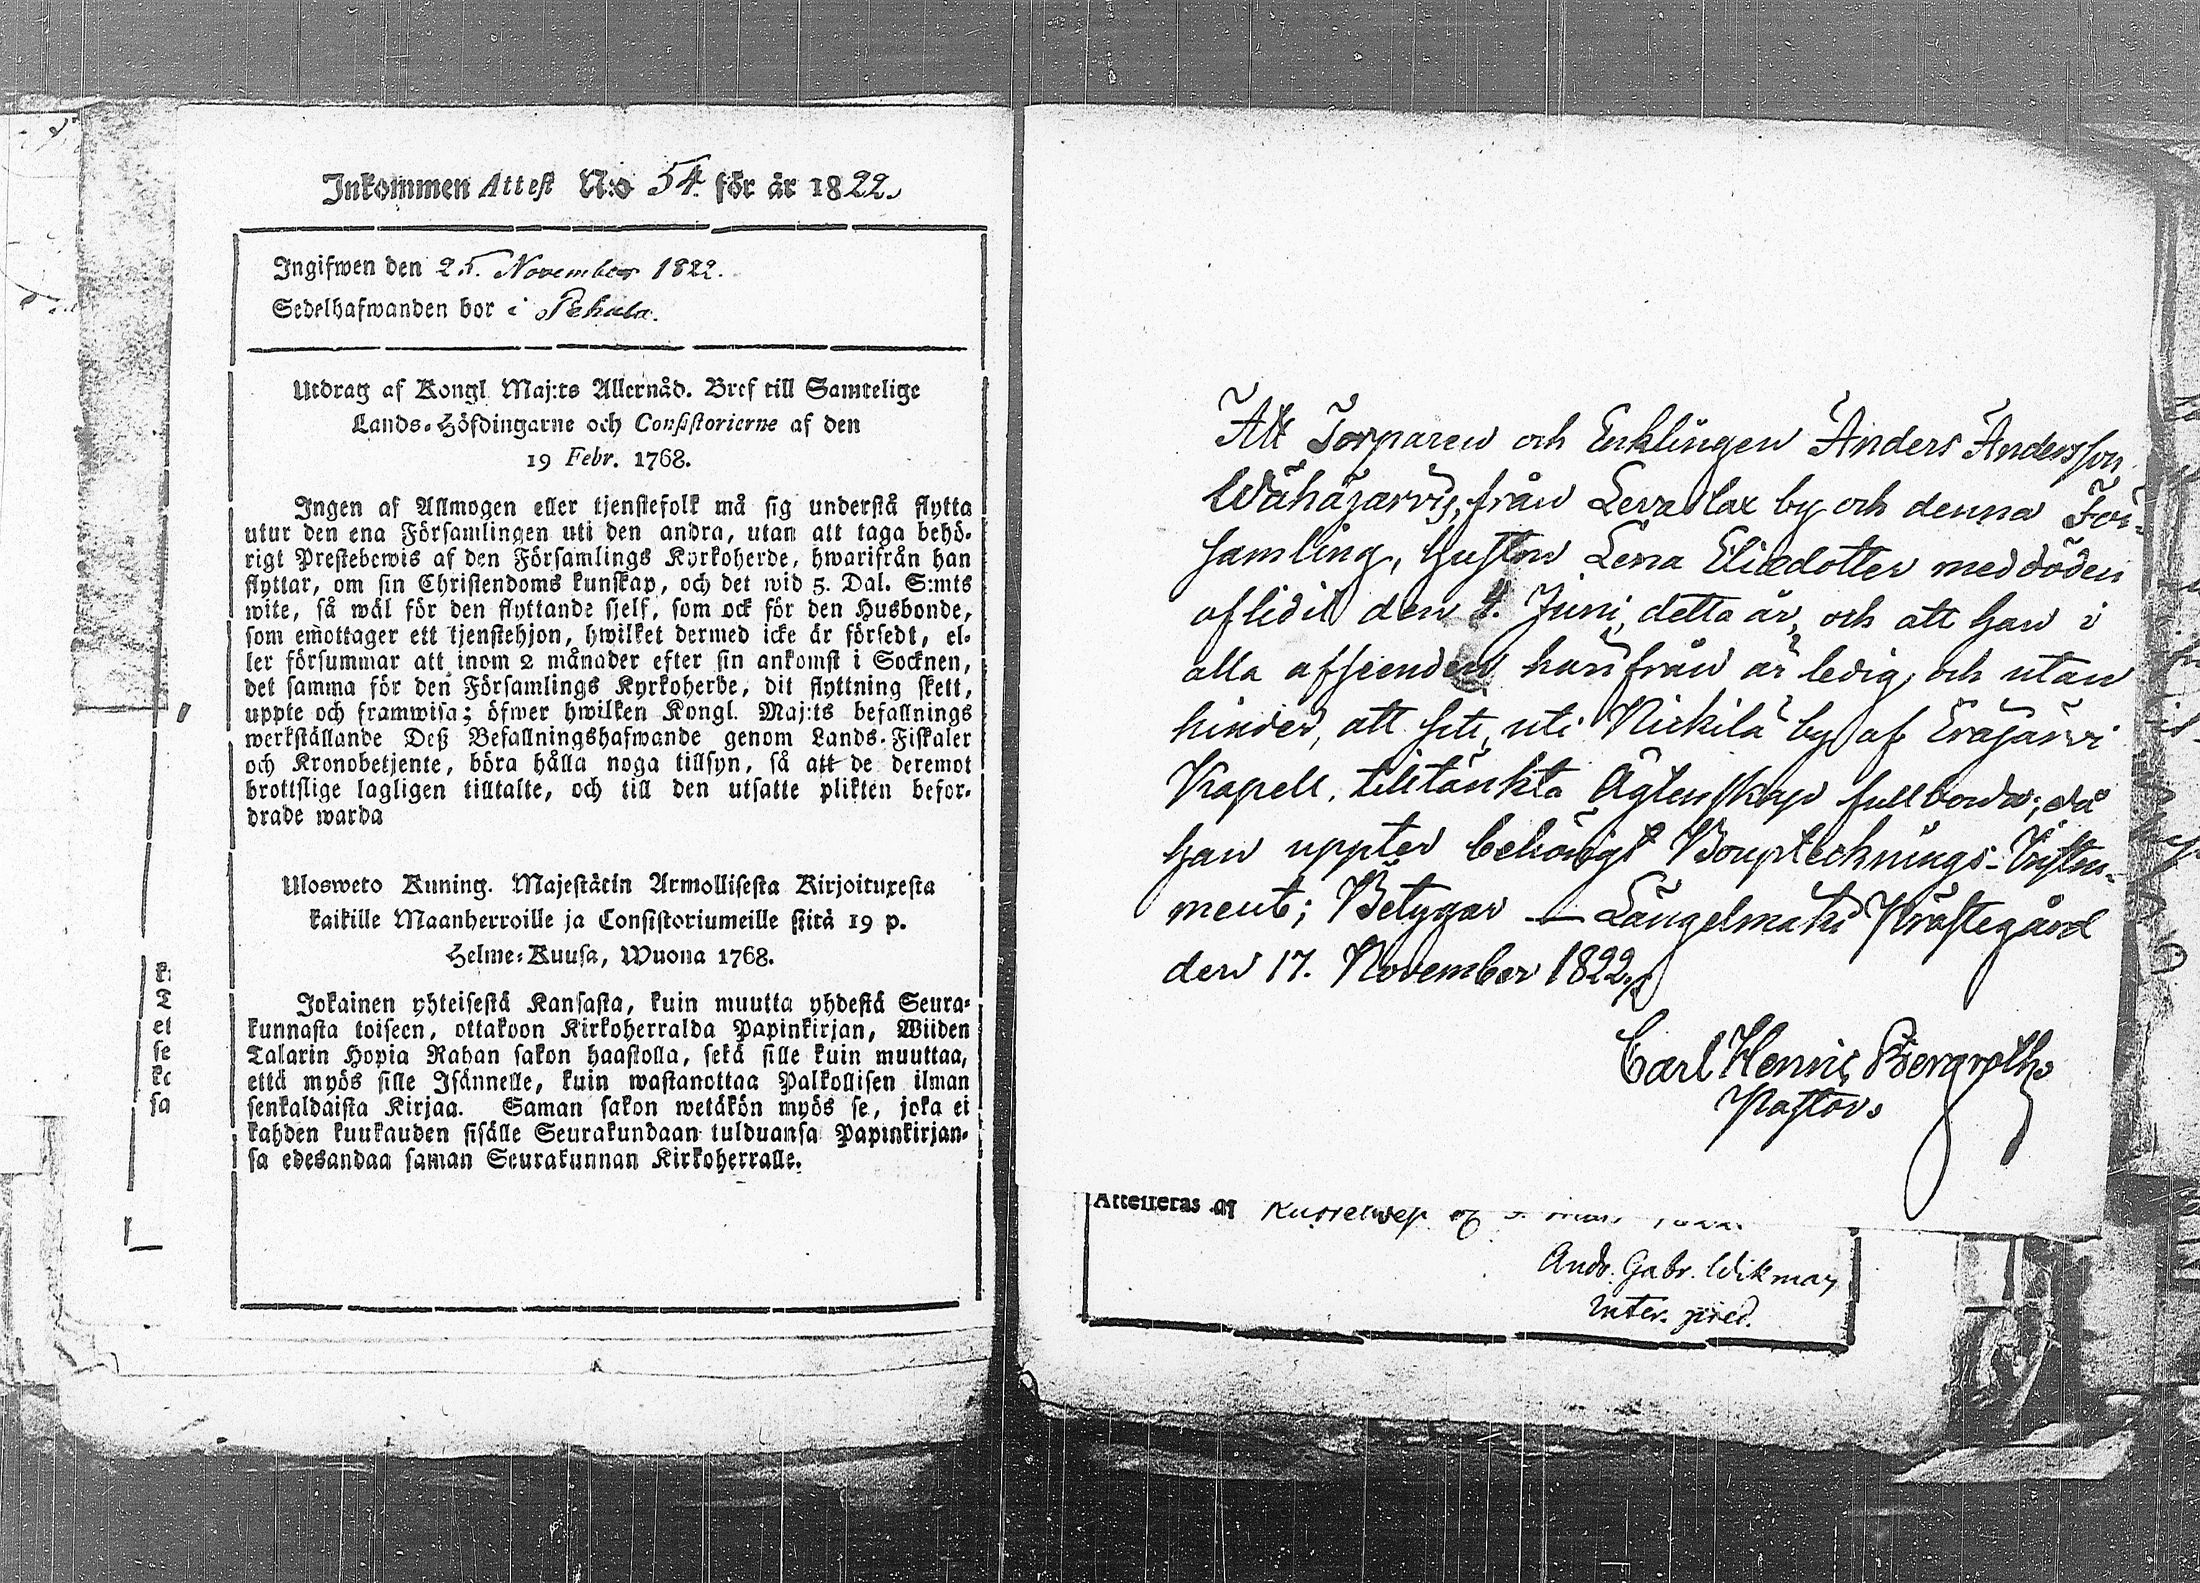 Inkommen Attest N:o 54. för år 1822.
Ingifwen den 25. November 1822.
Sedelhafwanden bor i Pehula.
Utdrag af Kongl Maj:ts Allernåd. Bref till Samtelige
Lands-Höfdingarne och Consistorierne af den
19 Febr. 1768.
Ingen af Allmogen eller tjenstefolk må sig understå flytta
utur den ena Församlingen uti den andra, utan att taga behö-
rigt Prestebewis af den Församlings Kyrkoherde, hwarifrån han
flyttar, om sin Christendoms kunskap, och det wid 5. Dal. S:mts
wite, så wäl för den flyttande sjelf, som ock för den Husbonde,
som em̄ottager ett tjenstehjon, hwilket dermed icke är försedt, el-
ler försummar att inom 2 månader efter sin ankomst i Socknen,
det samma för den Församlings Kyrkoherde, dit flyttning skett,
uppte och framwisa; öfwer hwilken Kongl. Maj:ts befallnings
werkställande Deß Befallningshafwande genom Lands-Fiskaler
och Kronobetjente, böra hålla noga tillsyn, så att de deremot
brottslige lagligen tilltalte, och till den utsatte plikten befor-
drade warda
Ulosweto Kuning. Majestätin Armollisesta Kirjoituxesta
kaikille Maanherroille ja Consistoriumeille siitä 19 p.
Helme-Kuusa, Wuona 1768.
Jokainen yhteisestä Kansasta, kuin muutta yhdestä Seura-
kunnasta toiseen, ottakoon Kirkoherralda Papinkirjan, Wiiden
Talarin Hopia Rahan sakon haastolla, sekä sille kuin muuttaa,
että myös sille Isännelle, kuin wastanottaa Palkollisen ilman
senkaldaista Kirjaa. Saman sakon wetäkön myös se, joka ei
kahden kuukauden sisälle Seurakundaan tulduansa Papinkirjan-
sa edesandaa saman Seurakunnan Kirkoherralle.
Att Torparen och Enklingen Anders Andersson
Wähäjärvi, från Leva lax by och denna För-
samling, hustru Lena Eliædotter med döden
aflidit den 4. Juni detta år, och att han i
alla afseenden härifrån är ledig och utan
hinder, att sitt, uti Nickilä by af Eräjärvi
Kapell, tilltänkta Ägtenskap fullborda; då
han uppter behörigt Bouptecknings-Instru-
ment; Betygar — Längelmäki Prästegård
den 17. November 1822.
Carl Henric Bergroth
Pastor.
Attesteras af
Andr. Gabr. Wikman